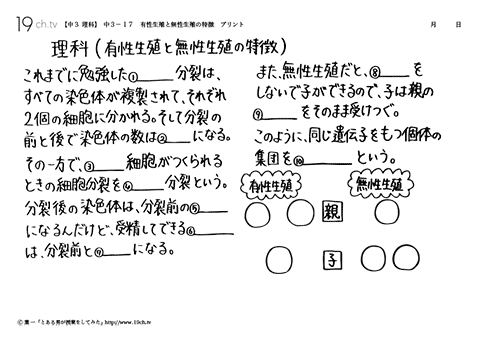 19ch.tv 【中3 理科】 中3-17 有性生殖と無性生殖の特徴 プリント 月 日
理科(有性生殖と無性生殖の特徴)
これまでに勉強した①____分裂は、
すべての染色体が複製されて、それぞれ
2個の細胞に分かれる。そして分裂の
前と後で染色体の数は②____になる。
その一方で、③____細胞がつくられる
ときの細胞分裂を④____分裂という。
分裂後の染色体は、分裂前の⑤____
になるんだけど、受精してできる⑥____
は、分裂前と⑦____になる。
また、無性生殖だと、⑧____を
しないで子ができるので、子は親の
⑨____をそのまま受けつぐ。
このように、同じ遺伝子をもつ個体の
集団を⑩____という。
有性生殖 無性生殖
親
子
© 葉一「とある男が授業をしてみた」http://www.19ch.tv